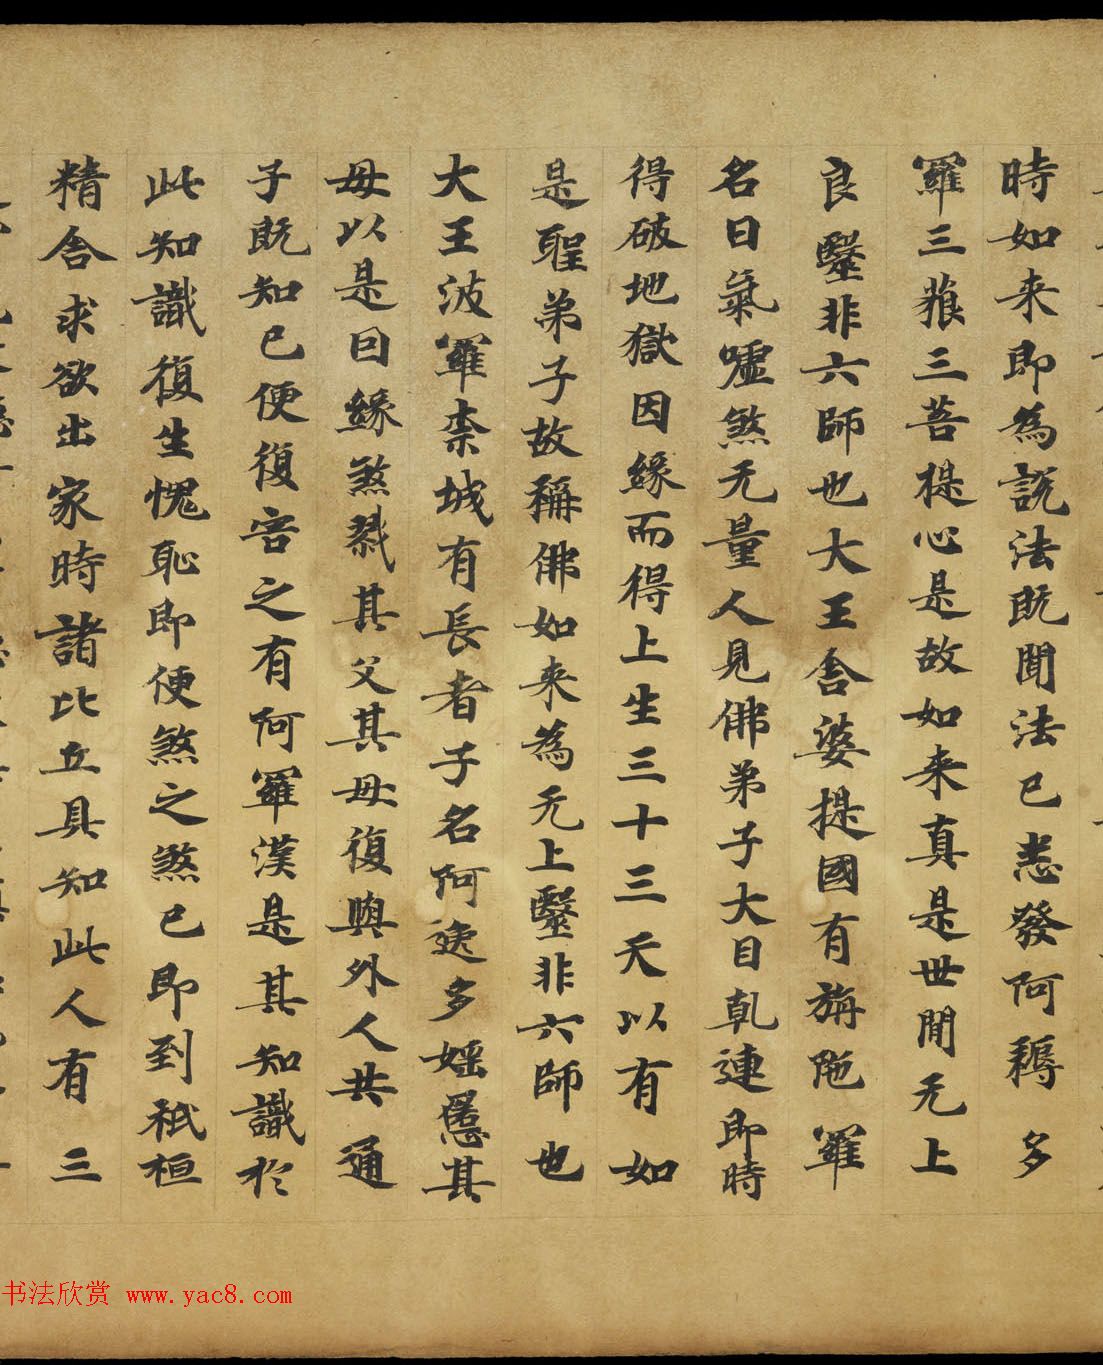 時如来即為説法既聞法已悉發阿耨多
羅三藐三菩提心是故如来真是世間无上
良毉非六師也大王舎婆提國有旃陁羅
名曰氣嘘煞无量人見佛弟子大目乹連即時
得破地獄因緣而得上生三十三天以有如
是聖弟子故稱佛如来為无上毉非六師也
大王波羅柰城有長者子名阿逸多婬慝其
母以是因緣煞戮其父其母復與外人共通
子既知已便復害之有阿羅漢是其知識於
此知識復生愧恥即便煞之煞已即到祇桓
精舎求欲出家時諸比丘具知此人有三
书法欣赏 www.yac8.com